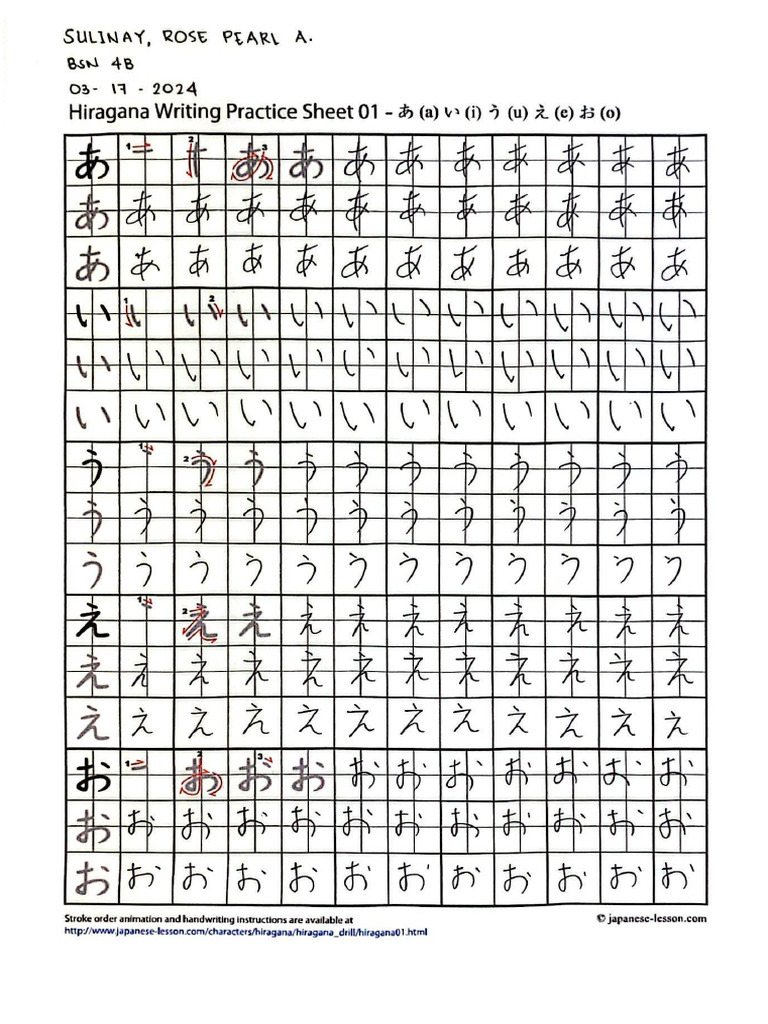 SULINAY, ROSE PEARL A.
BSN 4B
03-17-2024
Hiragana Writing Practice Sheet 01 - あ (a) い (i) う (u) え (e) お (o)
あ 1 2 3 あ あ あ あ あ あ あ あ
あ あ あ あ あ あ あ あ あ あ あ あ
あ あ あ あ あ あ あ あ あ あ あ あ
い 1 2 い い い い い い い い い い
い い い い い い い い い い い い
い い い い い い い い い い い い
う 1 2 う う う う う う う う う う
う う う う う う う う う う う う
う う う う う う う う う う う う
え 1 2 え え え え え え え え え え
え え え え え え え え え え え え
え え え え え え え え え え え え
お 1 2 お 3 お お お お お お お お お
お お お お お お お お お お お お
お お お お お お お お お お お お
Stroke order animation and handwriting instructions are available at
© japanese-lesson.com
http://www.japanese-lesson.com/characters/hiragana/hiragana_drill/hiragana01.html